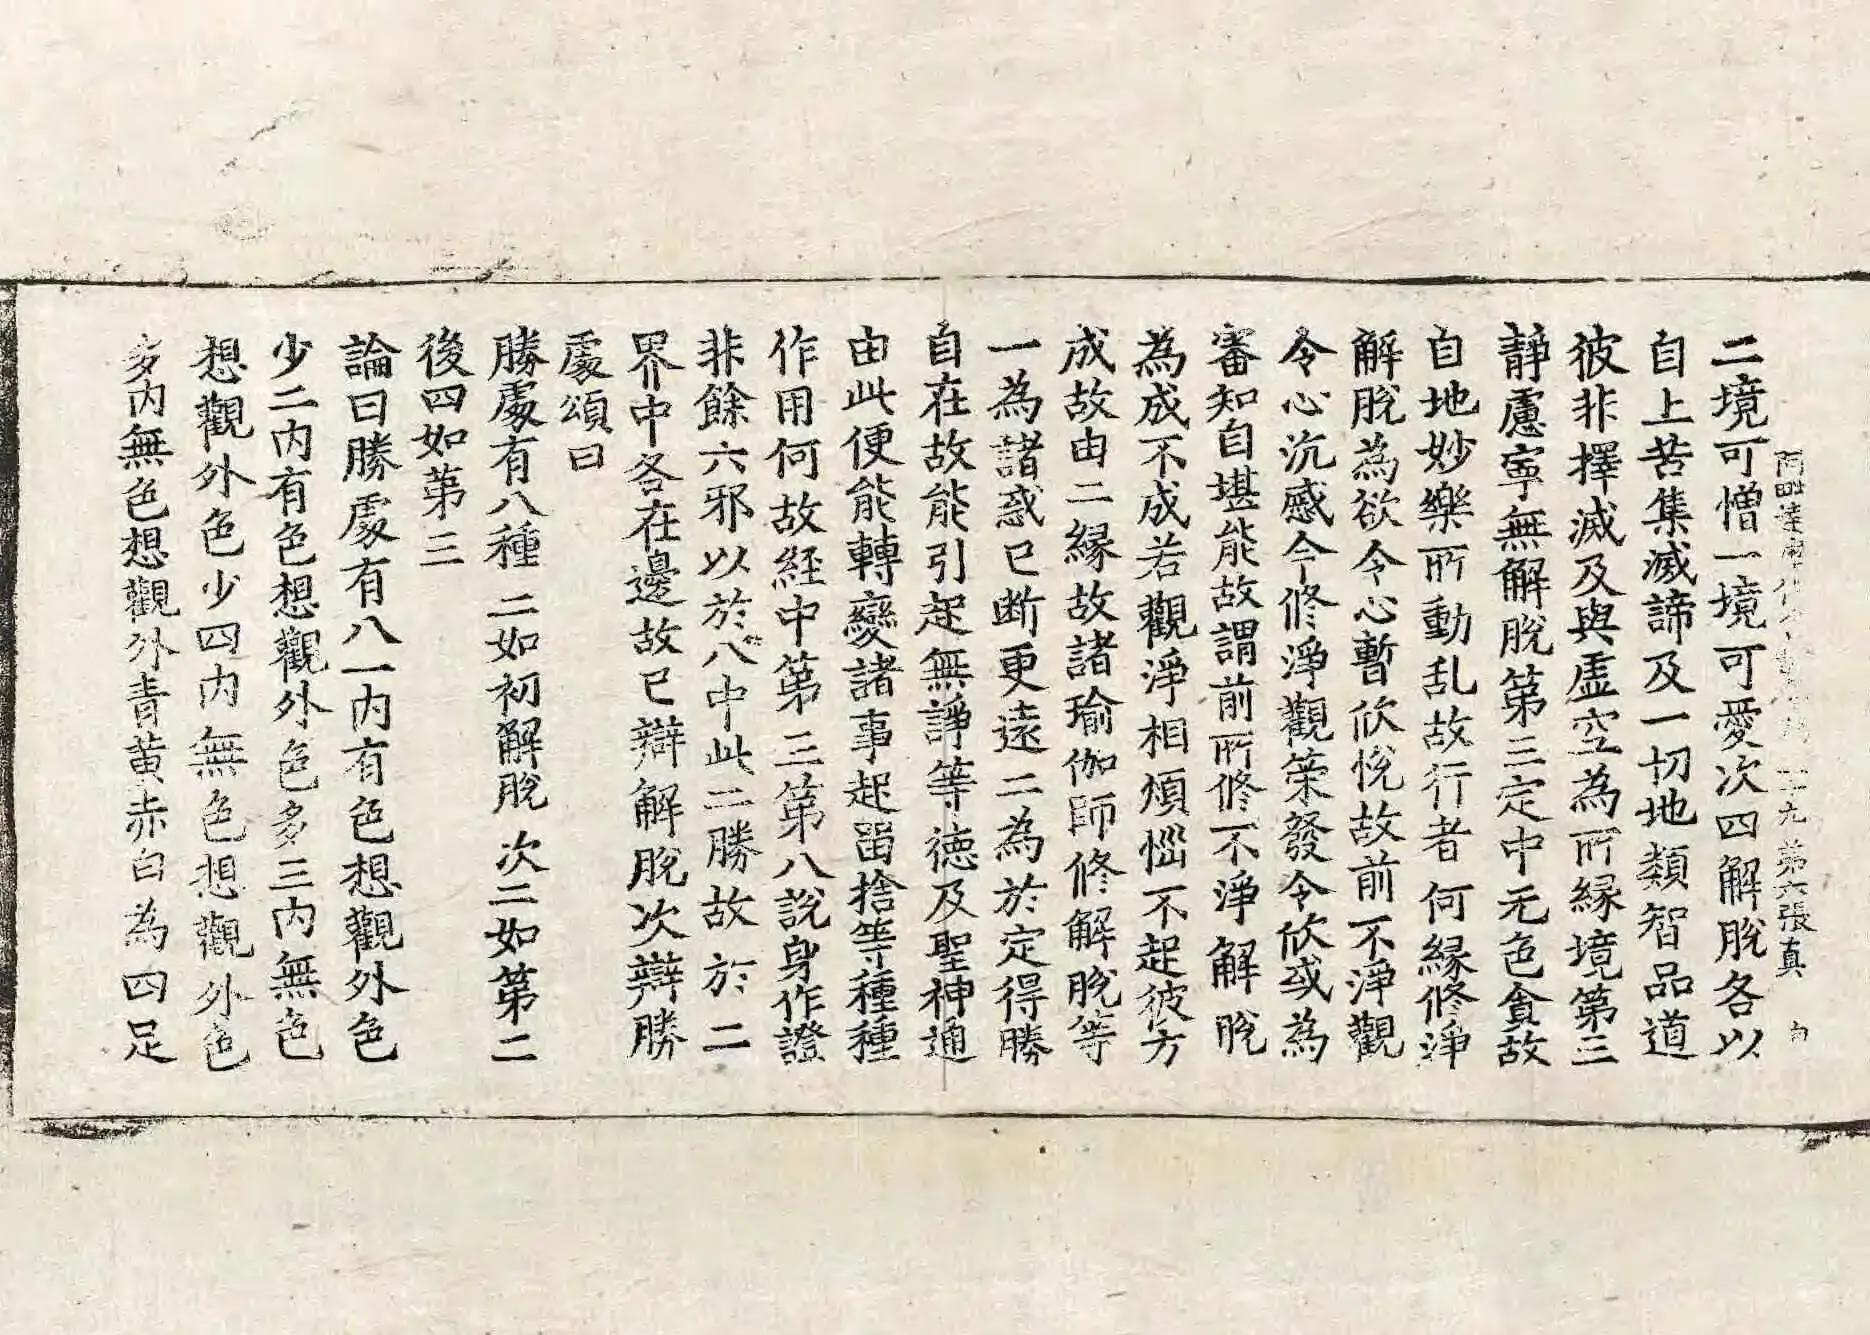 二境可憎一境可愛次四解脫各以
自上苦集滅諦及一切地類智品道
彼非擇滅及與虛空為所緣境第三
靜慮寧無解脫第三定中无色貪故
自地妙樂所動乱故行者何緣修淨
解脫為欲令心暫欣悅故前不淨觀
令心沉慼今修淨觀策發令欣或為
審知自堪能故謂前所修不淨解脫
為成不成若觀淨相煩惱不起彼方
成故由二緣故諸瑜伽師修解脫等
一為諸惑已断更遠二為於定得勝
自在故能引起無諍等德及聖神通
由此便能轉變諸事起留捨等種種
作用何故経中第三第八說身作證
非餘六邪以於八中此二勝故於二
界中各在邊故已辯解脫次辯勝
處頌曰
勝處有八種 二如初解脫 次二如第二
後四如第三
論曰勝處有八一内有色想觀外色
少二内有色想觀外色多三内無色
想觀外色少四内無色想觀外色
多内無色想觀外青黄赤白為四足